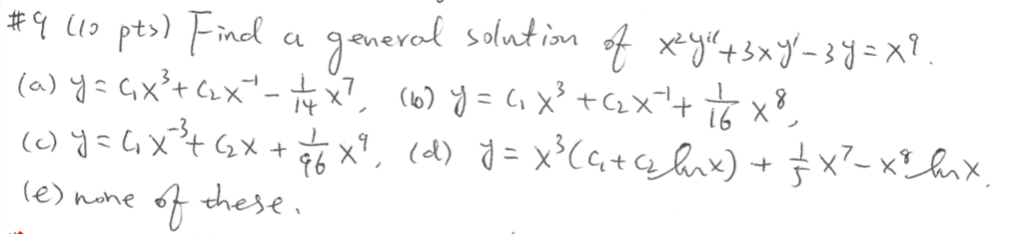 #9 (10 pts) Find a general solution of x²y''+3xy'-3y=x⁹.
(a) y = C₁x³+C₂x⁻¹-1/14 x⁷, (b) y = C₁x³+C₂x⁻¹+1/16 x⁸,
(c) y = C₁x⁻³+C₂x+1/96 x⁹, (d) y = x³(C₁+C₂lnx)+1/5 x⁷-x⁸lnx.
(e) none of these.